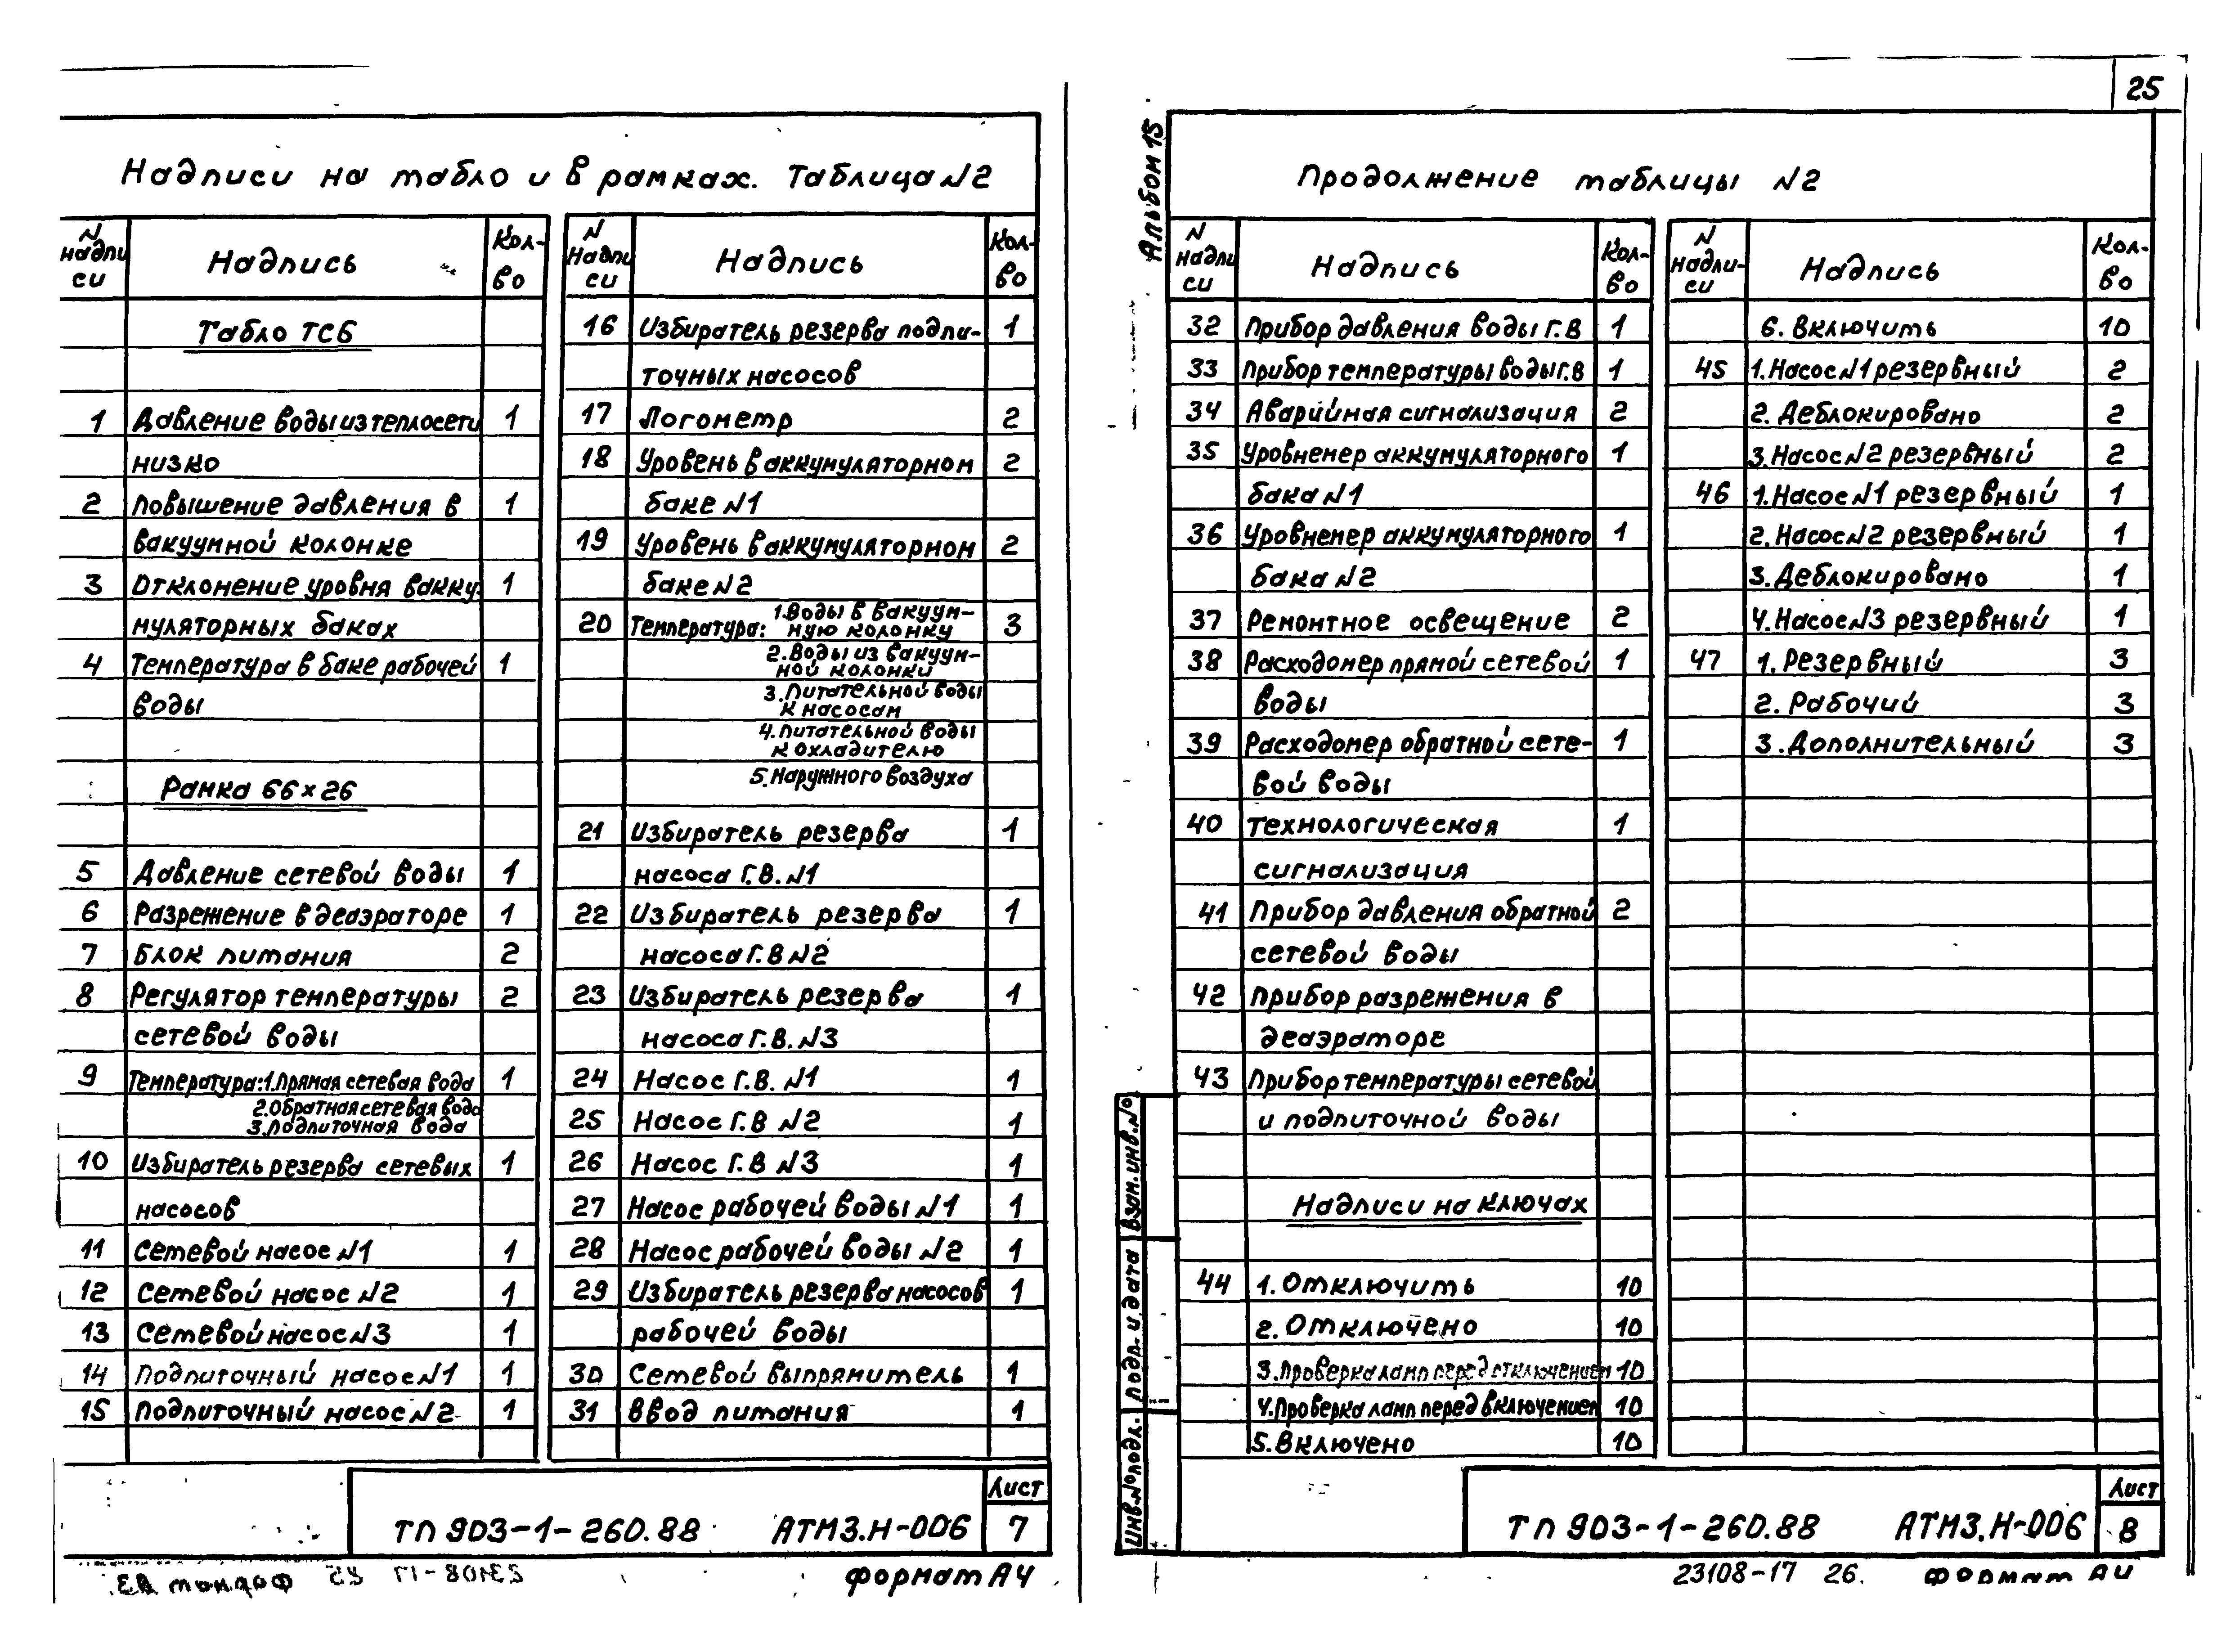 25
Надписи на табло и в рамках. Таблица N2
N надпи си Надпись Кол-во
Табло ТСБ
1 Давление воды из теплосети 1
низко
2 Повышение давления в 1
вакуумной колонке
3 Отклонение уровня в акку- 1
муляторных баках
4 Температура в баке рабочей 1
воды
Рамка 66×26
5 Давление сетевой воды 1
6 Разрежение в деаэраторе 1
7 Блок питания 2
8 Регулятор температуры 2
сетевой воды
9 Температура: 1. Прямая сетевая вода 1
2. Обратная сетевая вода
3. Подпиточная вода
10 Избиратель резерва сетевых 1
насосов
11 Сетевой насос N1 1
12 Сетевой насос N2 1
13 Сетевой насос N3 1
14 Подпиточный насос N1 1
15 Подпиточный насос N2 1
N Надпи си Надпись Кол-во
16 Избиратель резерва подпи- 1
точных насосов
17 Логометр 2
18 Уровень в аккумуляторном 2
баке N1
19 Уровень в аккумуляторном 2
баке N2
20 Температура: 1. Воды в вакуум- 3
ную колонку
2. Воды из вакуум-
ной колонки
3. Питательной воды
к насосам
4. Питательной воды
к охладителю
5. Наружного воздуха
21 Избиратель резерва 1
насоса Г.В. N1
22 Избиратель резерва 1
насоса Г.В N2
23 Избиратель резерва 1
насоса Г.В. N3
24 Насос Г.В. N1 1
25 Насос Г.В N2 1
26 Насос Г.В N3 1
27 Насос рабочей воды N1 1
28 Насос рабочей воды N2 1
29 Избиратель резерва насосов 1
рабочей воды
30 Сетевой выпрямитель 1
31 Ввод питания 1
ТП 903-1-260.88 АТМ3.Н-006
Лист
7
23108-17 25 Формат А3
формат А4
Альбом 15
Продолжение таблицы N2
N надпи си Надпись Кол-во
32 Прибор давления воды Г.В 1
33 Прибор температуры воды Г.В 1
34 Аварийная сигнализация 2
35 Уровнемер аккумуляторного 1
бака N1
36 Уровнемер аккумуляторного 1
бака N2
37 Ремонтное освещение 2
38 Расходомер прямой сетевой 1
воды
39 Расходомер обратной сете- 1
вой воды
40 Технологическая 1
сигнализация
41 Прибор давления обратной 2
сетевой воды
42 Прибор разрежения в
деаэраторе
43 Прибор температуры сетевой
и подпиточной воды
Надписи на ключах
44 1. Отключить 10
2. Отключено 10
3. Проверка ламп перед отключением 10
4. Проверка ламп перед включением 10
5. Включено 10
N надпи-си Надпись Кол-во
6. Включить 10
45 1. Насос N1 резервный 2
2. Деблокировано 2
3. Насос N2 резервный 2
46 1. Насос N1 резервный 1
2. Насос N2 резервный 1
3. Деблокировано 1
4. Насос N3 резервный 1
47 1. Резервный 3
2. Рабочий 3
3. Дополнительный 3
Инв. N подл. Подп. и дата Взам. инв. N
ТП 903-1-260.88 АТМ3.Н-006
Лист
8
23108-17 26. Формат А4